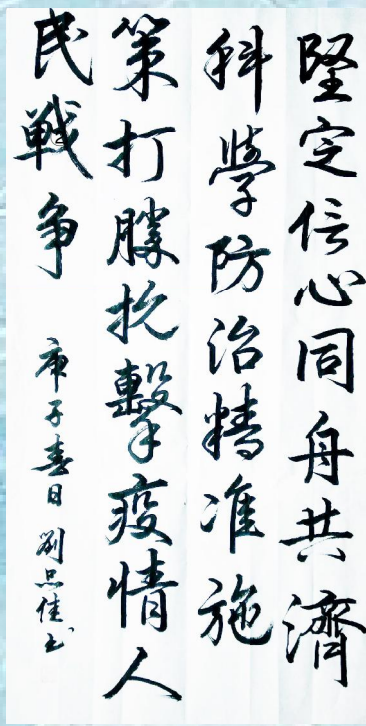 堅定信心同舟共濟
科學防治精准施
策打勝抗擊疫情人
民戰争
庚子春日劉品佳书